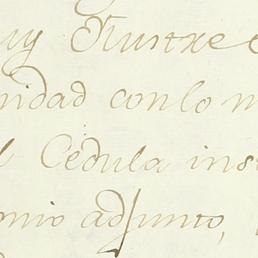 uy Ilustre
nidad con lo m
Cedula ins
onio adjunto,